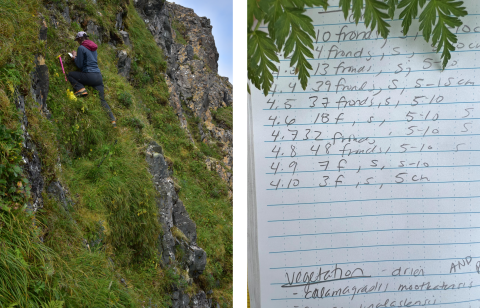 10 fronds, S
4 fronds, S, 5-10
13 fronds, S, 5-10
4.4 39 fronds, S, 5-15cm
4.5 37 fronds, S, 5-10
4.6 18 f , S, 5-10 S
4.7 32 fronds, 5-10 S
4.8 48 fronds, 5-10 S
4.9 7 f, S, 5-10
4.10 3 f, S, 5 cm
Vegetation - drier AND
- calamagrostis